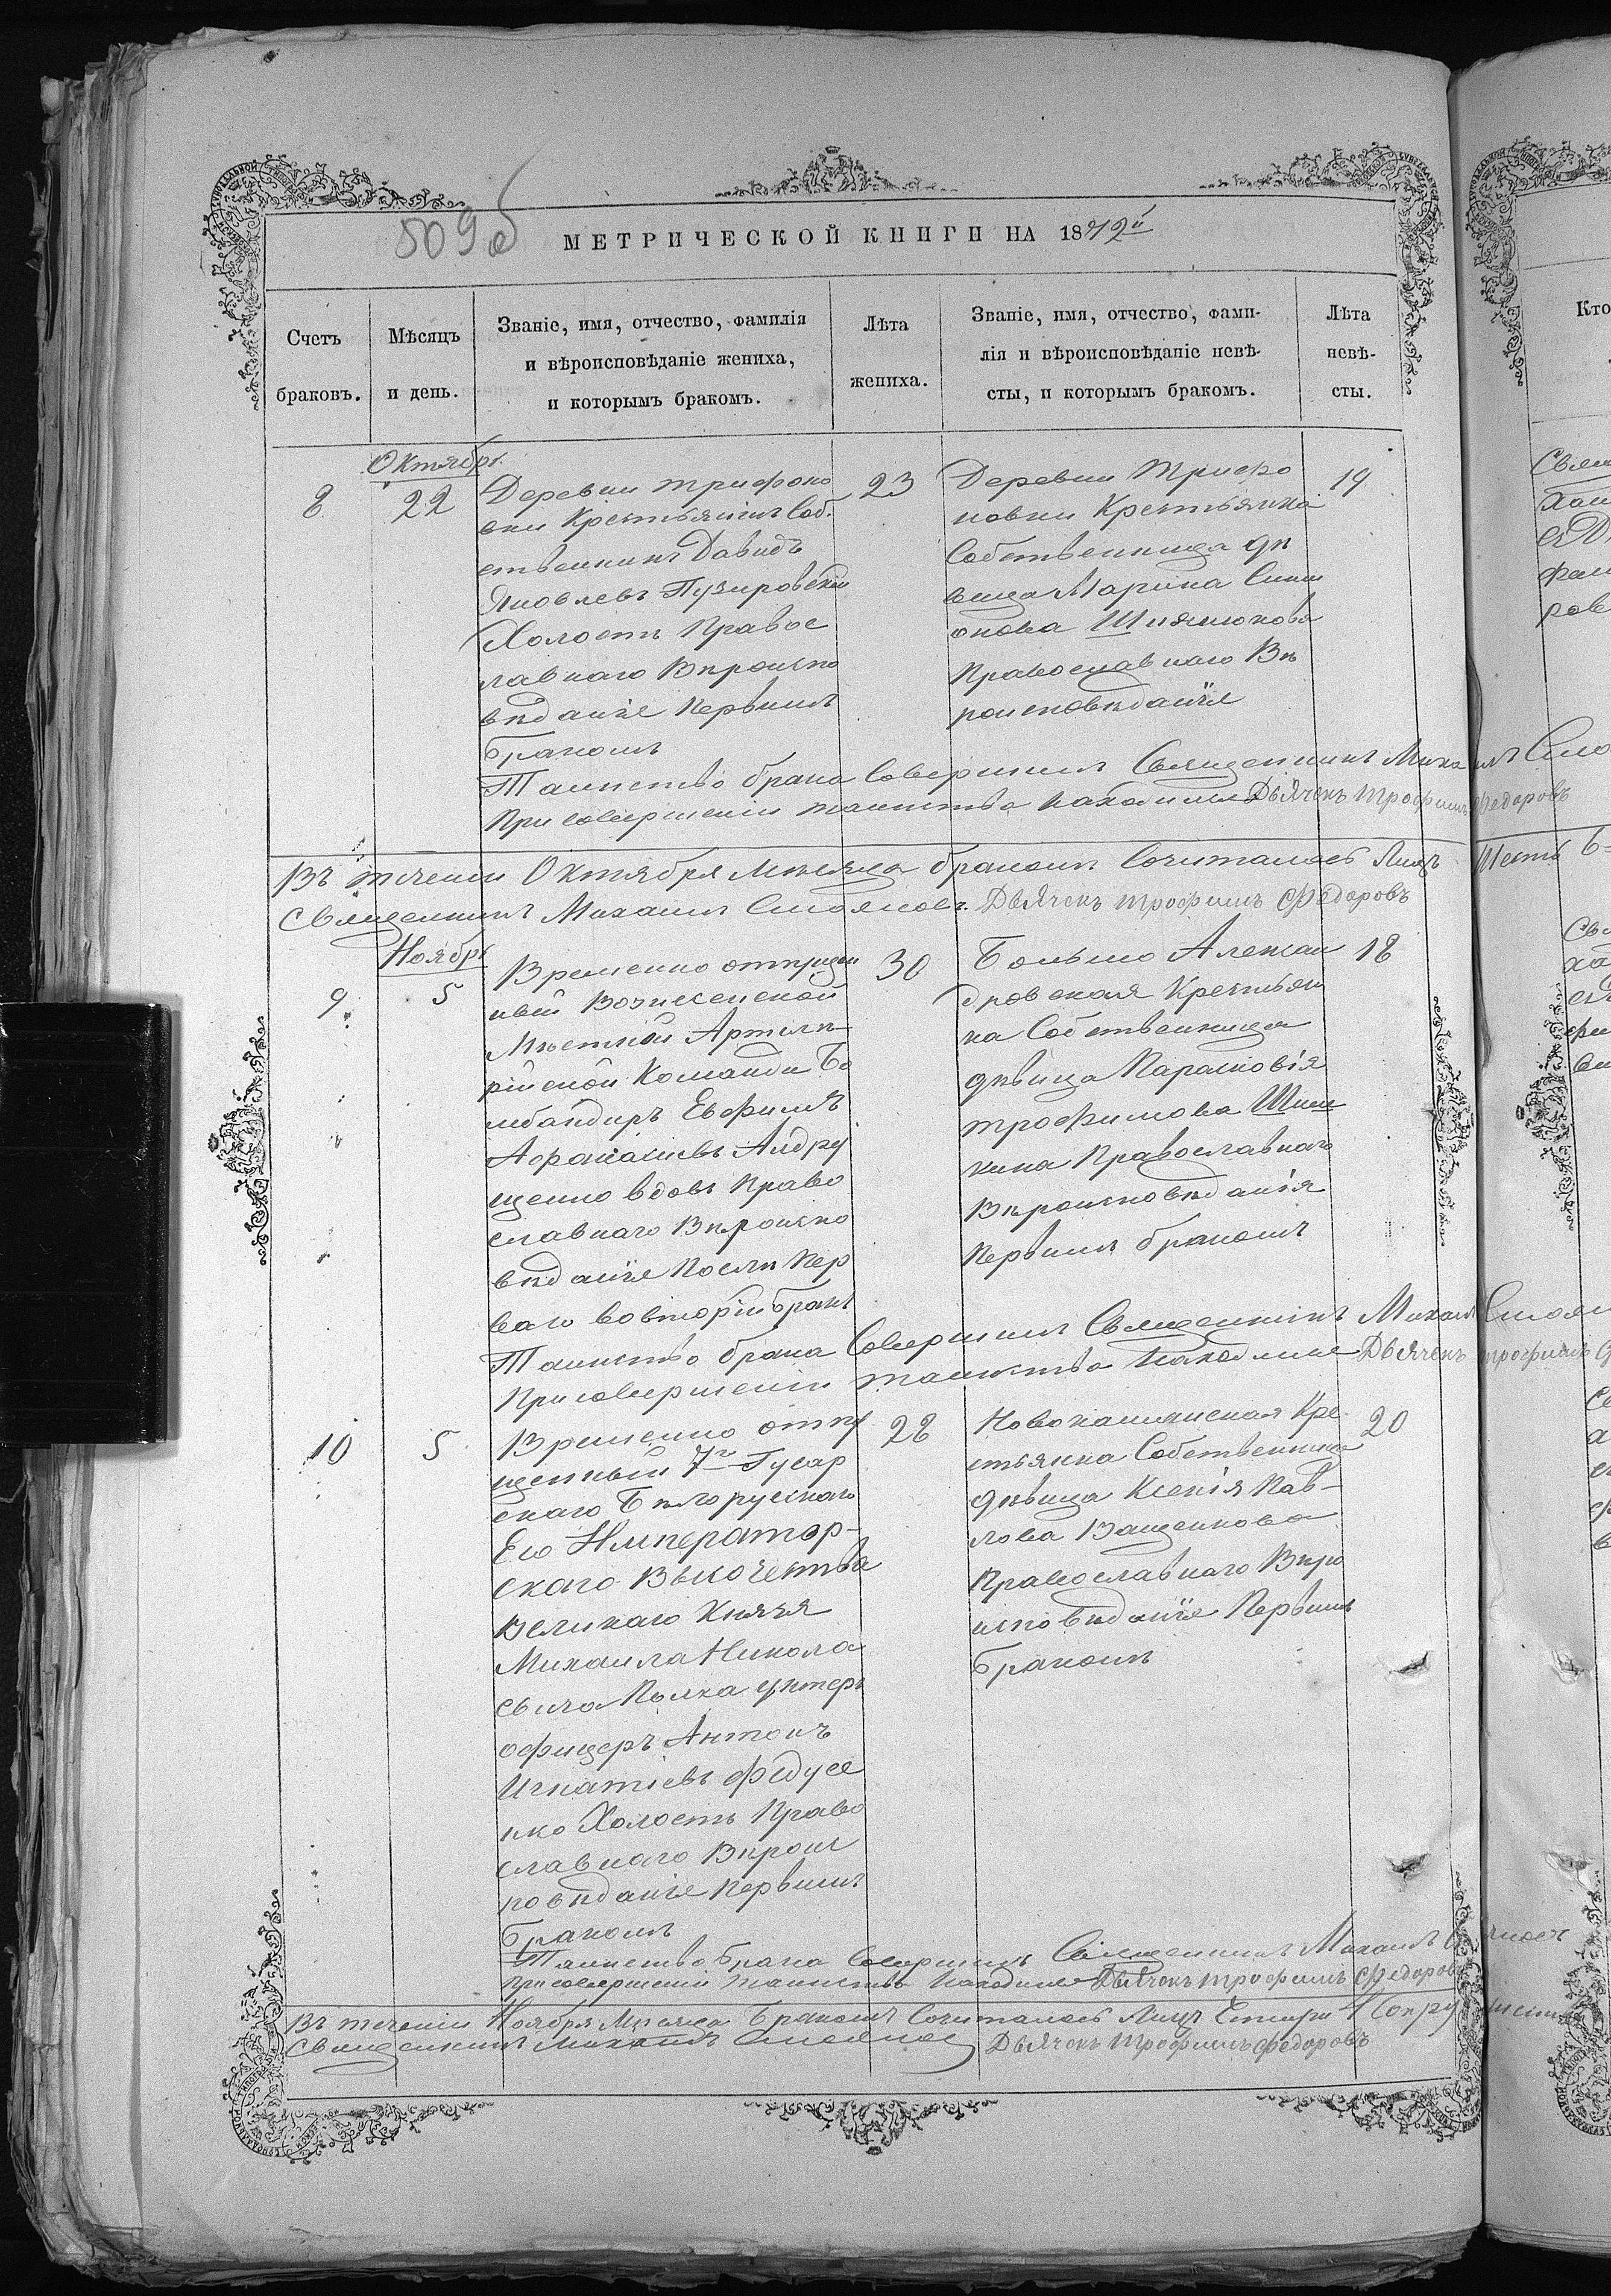 509об
МЕТРИЧЕСКОЙ КНИГИ НА 1872й
Счетъ браковъ.
Мѣсяцъ и день.
Званіе, имя, отчество, фамилія
и вѣроисповѣданіе жениха,
и которымъ бракомъ.
Лѣта
жениха.
Званіе, имя, отчество, фами-
лія и вѣроисповѣданіе невѣ-
сты, и которымъ бракомъ.
Лѣта
невѣ-
сты.
Октябрь
8
22
Деревни Трифоно
вки Крестьянинъ Соб.
ственникъ Давидъ
Яковлевъ
Холостъ Правос
лавнаго Вѣроиспо
вѣданіе Первымъ
бракомъ
23
Деревни Трифо
новки Крестьянка
Собственница дѣ
вица Марина
Православнаго Вѣ
роисповѣданія
19
Таинство брака Совершилъ Священникъ Михаилъ
При совершеніи таинства находился Дьячекъ Трофимъ Федоровъ
Въ теченіи Октября мѣсяца бракомъ Сочиталось Лицъ Шесть 6
Священникъ Михаилъ Стояновъ. Дьячекъ Трофимъ Федоровъ
Ноябрь
9
5
Временно отпущен
ный Вознесенской
Мѣстной Артилле
рійской Команды Бо
мбандиръ Евфимъ
Афанасіевъ Андру
щенко вдовъ Право
славнаго Вѣроиспо
вѣданіе Послѣ Пер
ваго вовторій бракъ
30
Больше Алексан
дровская Крестьян
ка Собственница
дѣвица Парасковія
Трофимова Шин
кина Православнаго
Вѣроисповѣданія
Первымъ бракомъ
18
Таинство брака Совершилъ Священникъ Михаилъ
При совершеніи таинства находился Дьячекъ Трофимъ
10
5
Временно отпу
щенный 7го Гусар
скаго Бѣлорускаго
Его Император-
скаго Высочества
Великаго Князя
Михаила Никола
евича Полка унтеръ
офицеръ Антонъ
Игнатіевъ Федусе
нко Холостъ Право
славнаго Вѣроис
повѣданіе Первымъ
бракомъ
28
Крес
тьянка Собственница
дѣвица Ксенія Пав-
лова Ващенкова
Православнаго Вѣро
исповѣданіе Первымъ
бракомъ
20
Таинство брака Совершилъ Священникъ Михаилъ Стояновъ
При совершеніи таинства находился Дьячекъ Трофимъ Федоровъ
Въ теченіи Ноября Мѣсяца Бракомъ Сочиталось Лицъ Четыри 4
Священникъ Михаилъ Стояновъ Дьячекъ Трофимъ Федоровъ